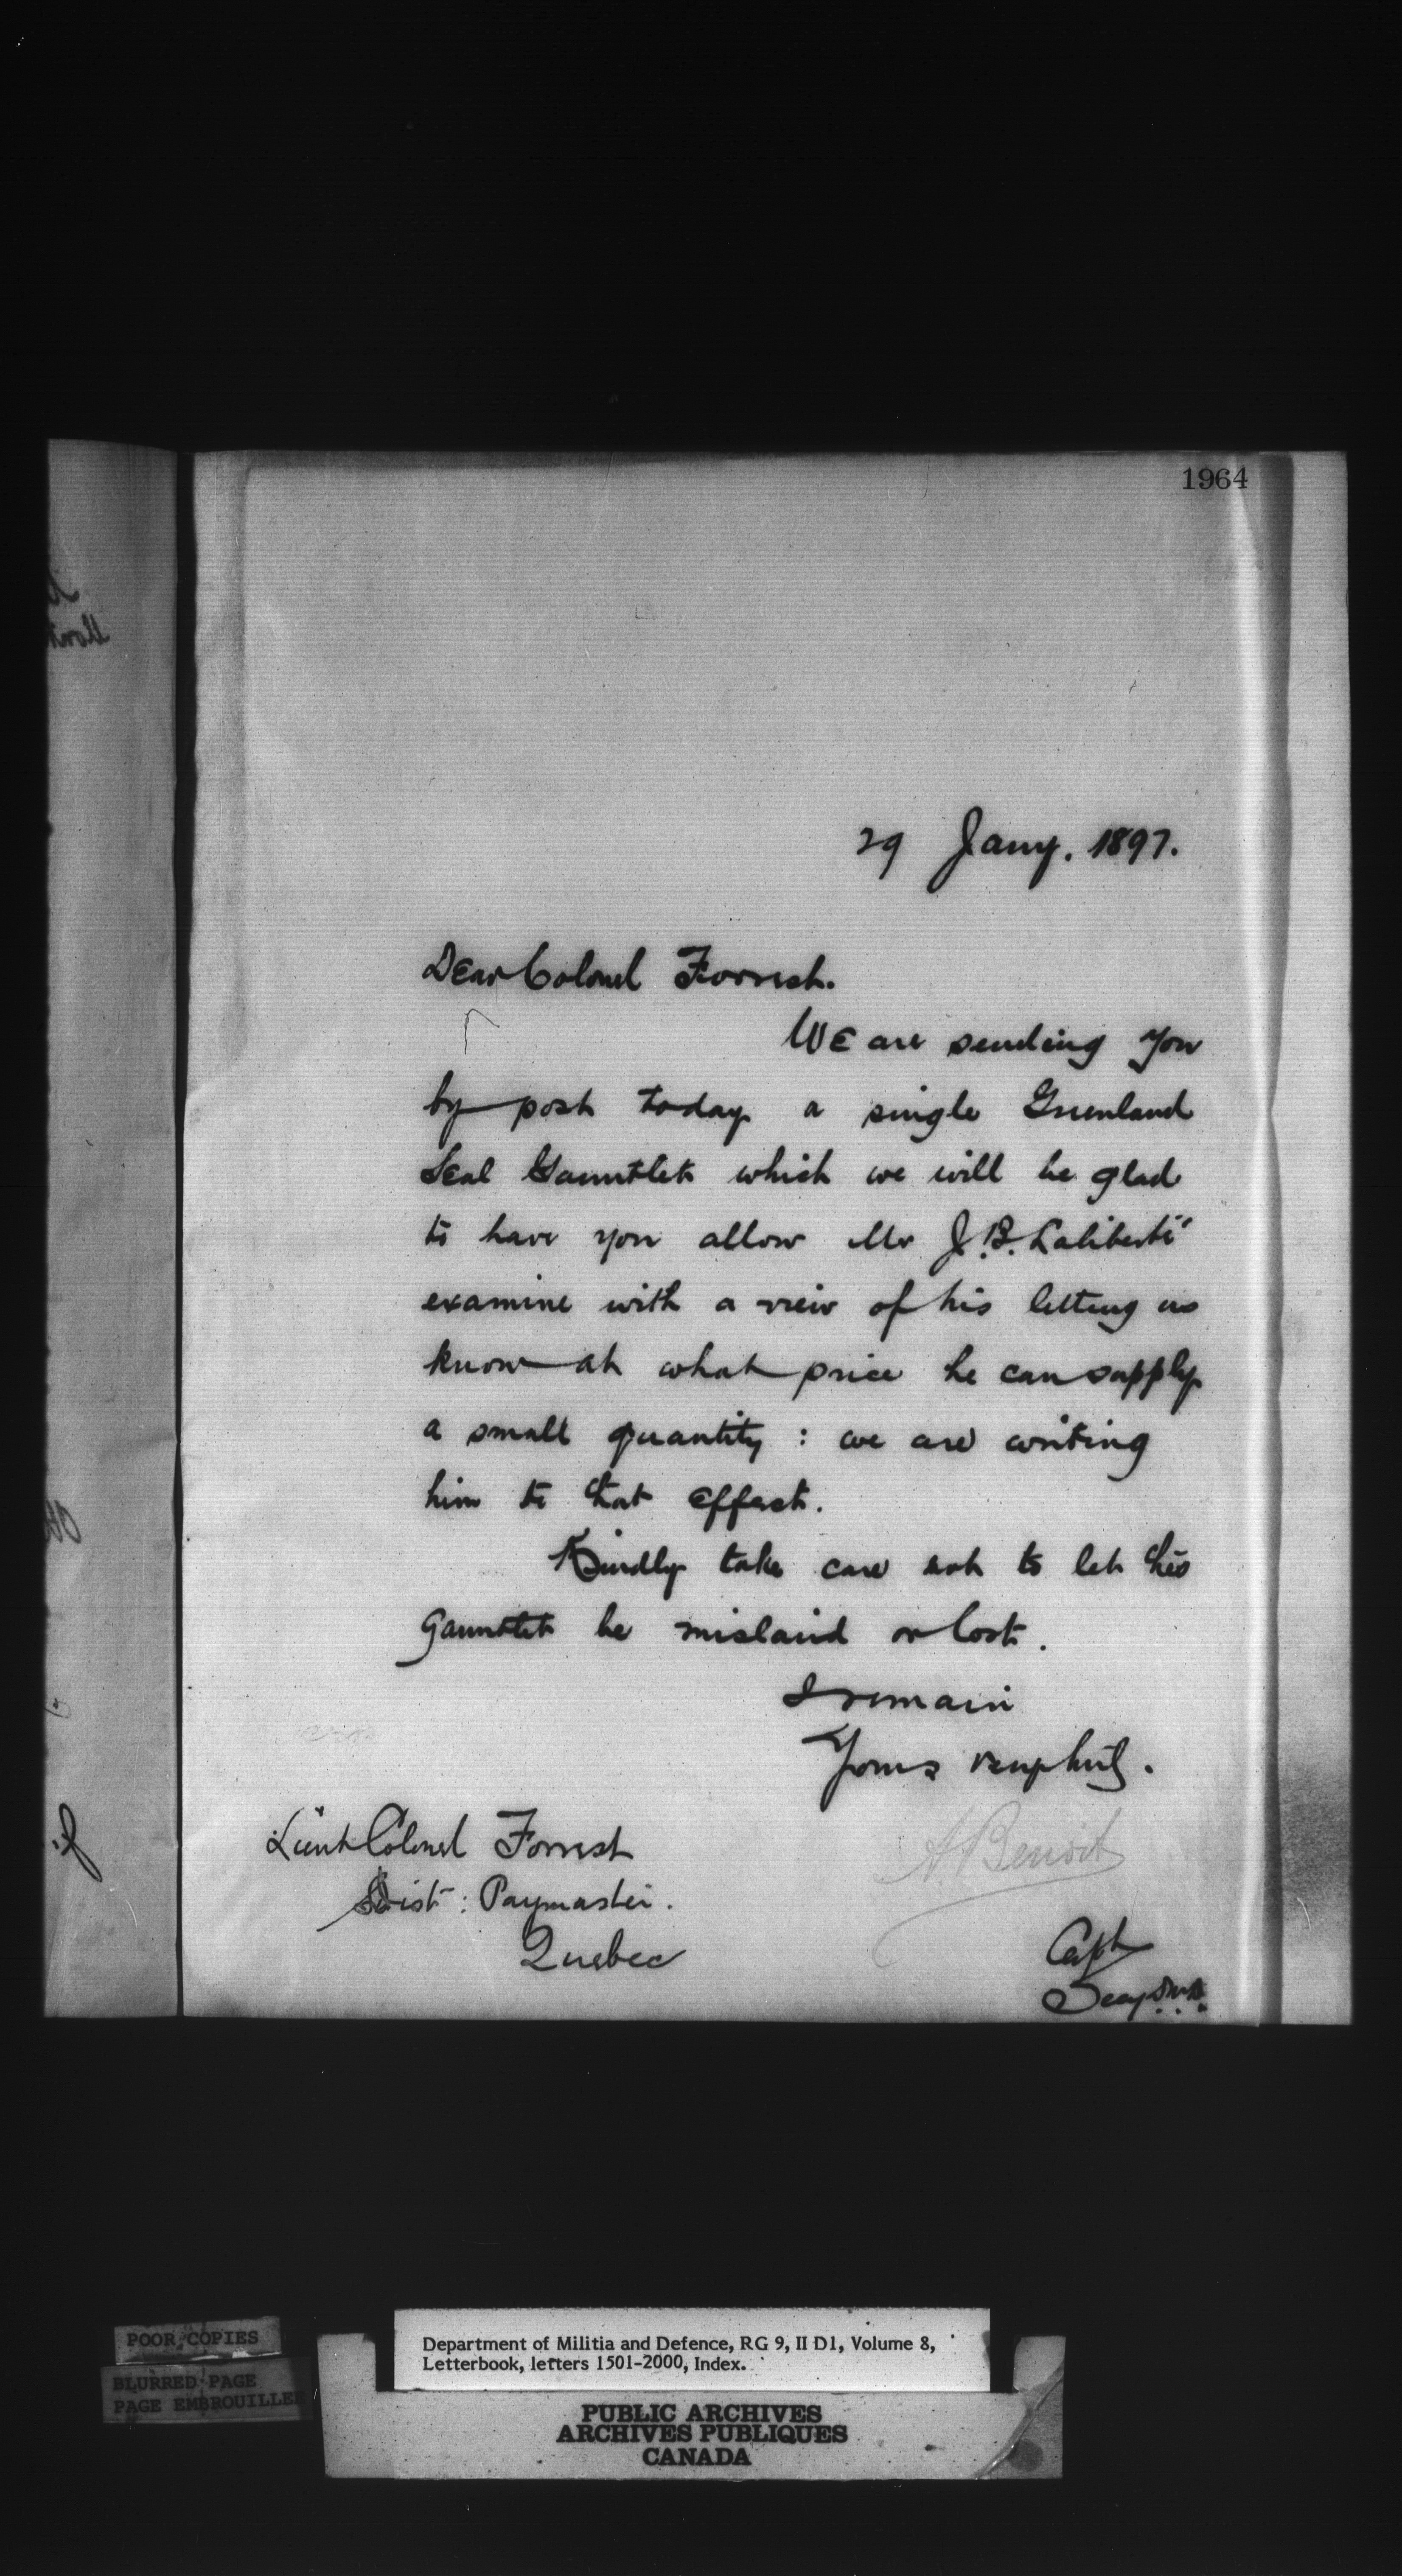 1964
29 Jany. 1897.
Dear Colonel Forrest.
We are sending you
by post today a single Greenland
Seal Gauntlet which we will be glad
to have you allow Mr J.B. Laliberté
examine with a view of his letting us
know at what price he can supply
a small quantity : we are writing
him to that effect.
Kindly take care not to let this
gauntlet be mislaid or lost.
I remain
Yours respctfuly.
A. Benoit
Lieut Colonel Forrest
Dist : Paymaster.
Quebec
Capt
Secy
POOR COPIES
BLURRED PAGE
PAGE EMBROUILLEE
Department of Militia and Defence, RG 9, II D1, Volume 8,
Letterbook, letters 1501-2000, Index.
PUBLIC ARCHIVES
ARCHIVES PUBLIQUES
CANADA